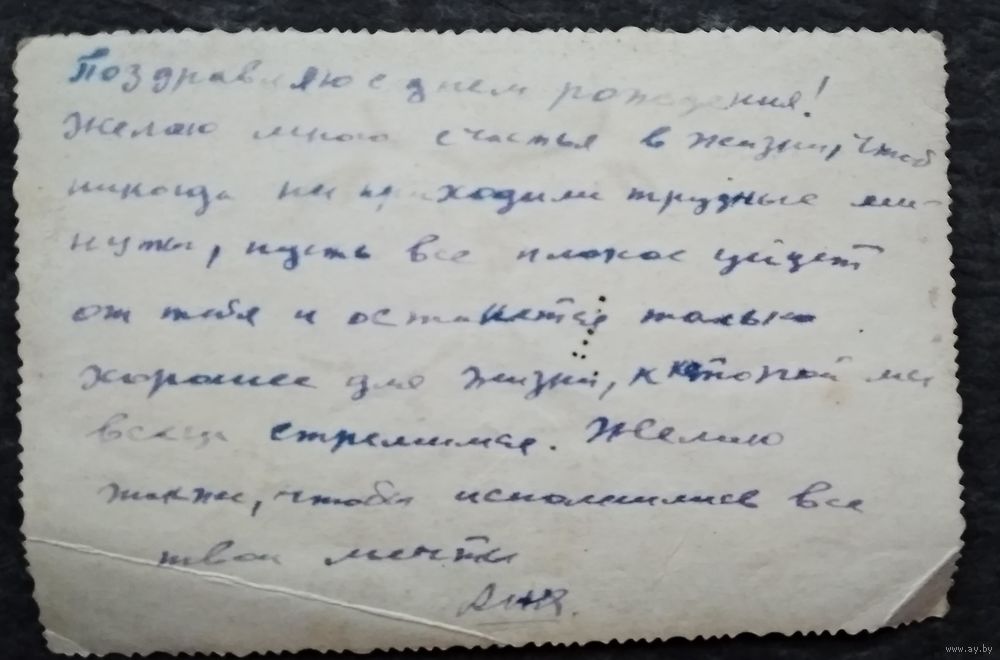 Поздравляю с днем рождения!
Желаю много счастья в жизни, чтоб
никогда не приходили трудные ми-
нуты, пусть все плохое уйдет
от тебя и останется только
хорошее для жизни, к которой мы
всегда стремимся. Желаю
также, чтобы исполнились все
твои мечты
Аня.
www.ay.by